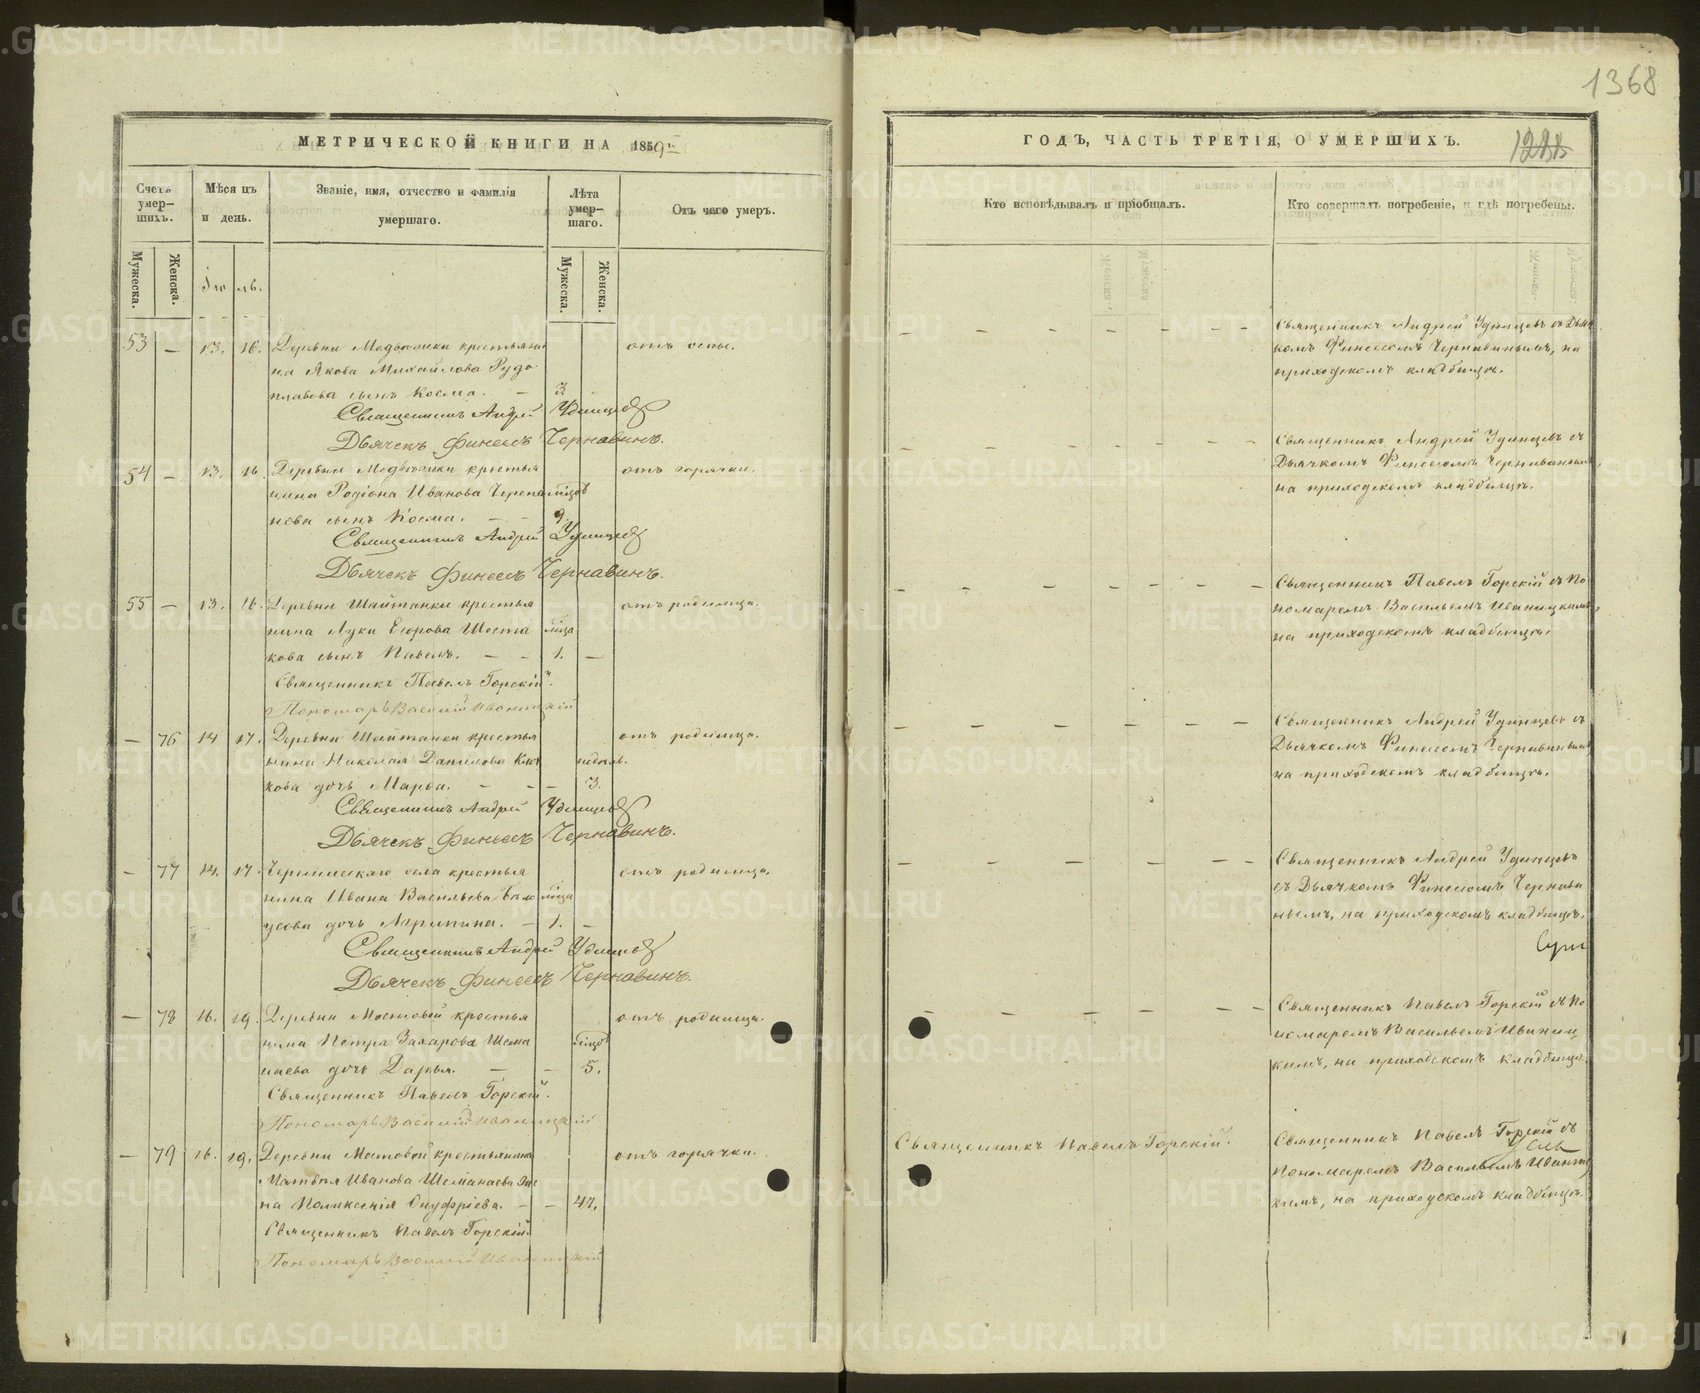 1368
МЕТРИЧЕСКОЙ КНИГИ НА 1859й
Счетъ умер-шихъ.
Мѣсяцъ и день.
Званіе, имя, отчество и фамилія умершаго.
Лѣта умер-шаго.
Отъ чего умеръ.
Мужеска. Женска.
Іюль.
Мужеска. Женска.
53 — 13. 16. Деревни Медвѣжки крестьяни отъ оспы.
на Якова Михайлова Рудо
плавова сынъ Косма. — 3 —
Священникъ Андрей Удинцевъ
Дьячекъ Финеесъ Чернавинъ.
54 — 13. 16. Деревни Медвѣжки крестья отъ горячки.
нина Родіона Иванова Черепа мѣсяцов
нова сынъ Косма. — — 9
Священникъ Андрей Удинцевъ
Дьячекъ Финеесъ Чернавинъ.
55 — 13. 16. Деревни Шайтанки крестья отъ родимца.
нина Луки Егорова Шеста мѣсяца
кова сынъ Павелъ. — — 1. —
Священникъ Павелъ Горскій.
Пономарь Василій Иваницкій
— 76 14 17. Деревни Шайтанки крестья отъ родимца.
нина Николая Данилова Клю недѣль.
кова дочь Марѳа. — — — 3.
Священникъ Андрей Удинцевъ
Дьячекъ Финеесъ Чернавинъ.
— 77 14. 17. села крестья отъ родимца.
нина Ивана Васильева Бало мѣсяца
усова дочь Агрипина. — 1. —
Священникъ Андрей Удинцевъ
Дьячекъ Финеесъ Чернавинъ.
— 78 16. 19. Деревни Мостовой крестья отъ родимца.
нина Петра Захарова Шема мѣсяцов
наева дочь Дарья. — — 5.
Священникъ Павелъ Горскій.
Пономарь Василій Иваницкій
— 79 16. 19. Деревни Мостовой крестьянина отъ горячки.
Матвѣя Иванова Шеманаева же
на Поликсенія Онуфріева. — — 47.
Священникъ Павелъ Горскій.
Пономарь Василій Иваницкій
ГОДЪ, ЧАСТЬ ТРЕТІЯ, О УМЕРШИХЪ.
Кто исповѣдывалъ и пріобщалъ.
Кто совершалъ погребеніе, и гдѣ погребены.
Священникъ Андрей Удинцевъ съ Дьяч
комъ Финеесомъ Чернавинымъ, на
приходскомъ кладбищѣ.
Священникъ Андрей Удинцевъ съ
Дьячкомъ Финеесомъ Чернавинымъ,
на приходскомъ кладбищѣ.
Священникъ Павелъ Горскій съ По
номаремъ Васильемъ Иваницкимъ,
на приходскомъ кладбищѣ.
Священникъ Андрей Удинцевъ съ
Дьячкомъ Финеесомъ Чернавинымъ
на приходскомъ кладбищѣ.
Священникъ Андрей Удинцевъ
съ Дьячкомъ Финеесомъ Чернави
нымъ, на приходскомъ кладбищѣ.
Священникъ Павелъ Горскій съ По
номаремъ Васильемъ Иваниц
кимъ, на приходскомъ кладбищѣ.
Священникъ Павелъ Горскій.
Священникъ Павелъ Горскій съ
Пономаремъ Васильемъ Иваниц
кимъ, на приходскомъ кладбищѣ.
METRIKI.GASO-URAL.RU